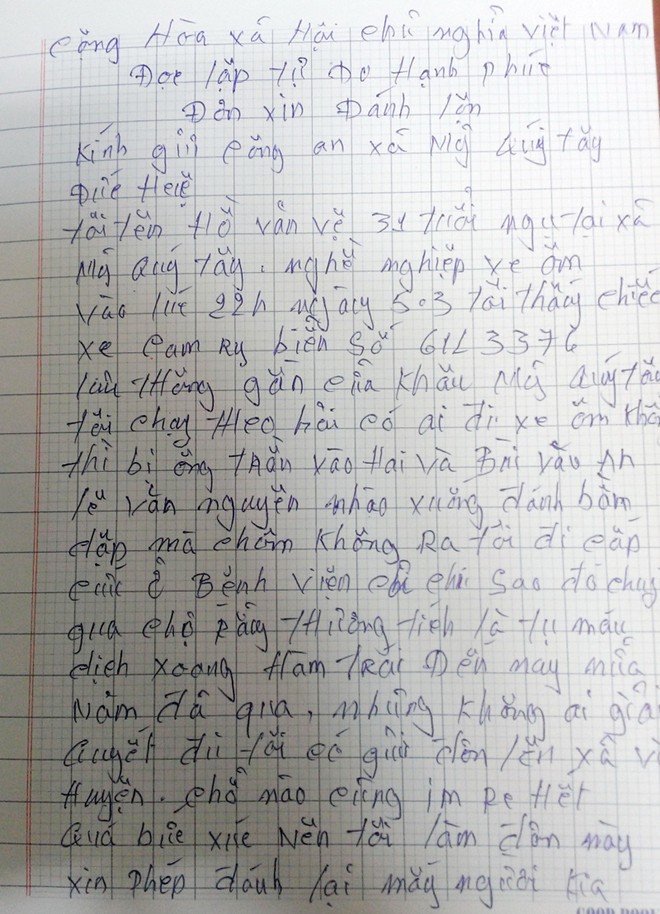 Cộng Hòa xã Hội chủ nghĩa việt Nam
Đọc lặp tự Do Hạnh phúc
Đơn xin Đánh lộn
Kính gửi công an xã Mỹ Quý tây
Đức Huệ
tôi tên Hồ văn vẽ 31 tuổi ngụ tại xã
Mỹ Quý tây. nghề nghiệp xe ôm
vào lúc 22h ngày 5.3 tôi thấy chiếc
xe Cam Ry biển số 61L 3376
lưu thông gần cửa khẩu Mỹ Quý tây
tôi chạy theo hỏi có ai đi xe ôm khôn
thì bị ông trần vào Hai và Bùi văn An
lê văn nguyên nhào xuống đánh bầm
dập mà chôm không Ra tôi đi cấp
cứu ở Bệnh viện sao đó chuy
qua chợ Rẫy thương tích là tụ máu
dịch xoang Hàm trái Đến nay nữa
Năm đã qua, nhưng không ai giải
Quyết dù tôi có gửi đơn lên xã và
Huyện. chổ nào cũng im Re Hết
Quá bức xúc Nên tôi làm đơn này
xin phép đánh lại mấy người kia